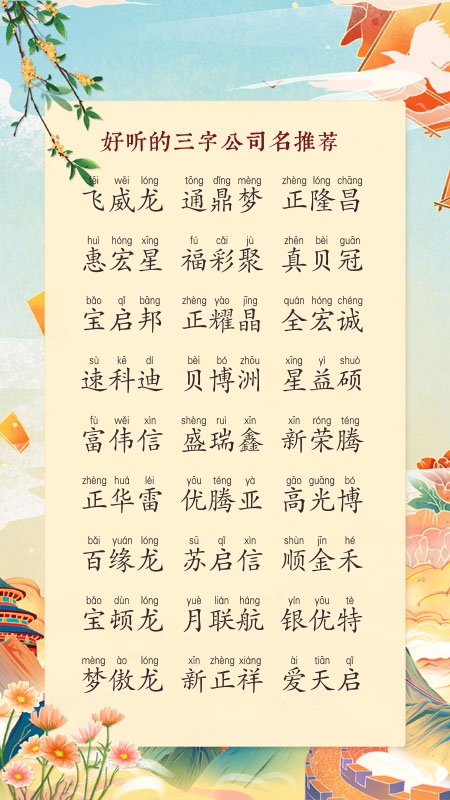 好听的三字公司名推荐
fēi wēi lóng tōng dǐng mèng zhèng lóng chāng
飞威龙 通鼎梦 正隆昌
huì hóng xīng fú cǎi jù zhēn bèi guān
惠宏星 福彩聚 真贝冠
bǎo qǐ bāng zhèng yào jīng quán hóng chéng
宝启邦 正耀晶 全宏诚
sù kē dí bèi bó zhōu xīng yì shuò
速科迪 贝博洲 星益硕
fù wěi xìn shèng ruì xīn xīn róng téng
富伟信 盛瑞鑫 新荣腾
zhèng huá léi yōu téng yà gāo guāng bó
正华雷 优腾亚 高光博
bǎi yuán lóng sū qǐ xìn shùn jīn hé
百缘龙 苏启信 顺金禾
bǎo dùn lóng yuè lián háng yín yōu tè
宝顿龙 月联航 银优特
mèng ào lóng xīn zhèng xiáng ài tiān qǐ
梦傲龙 新正祥 爱天启